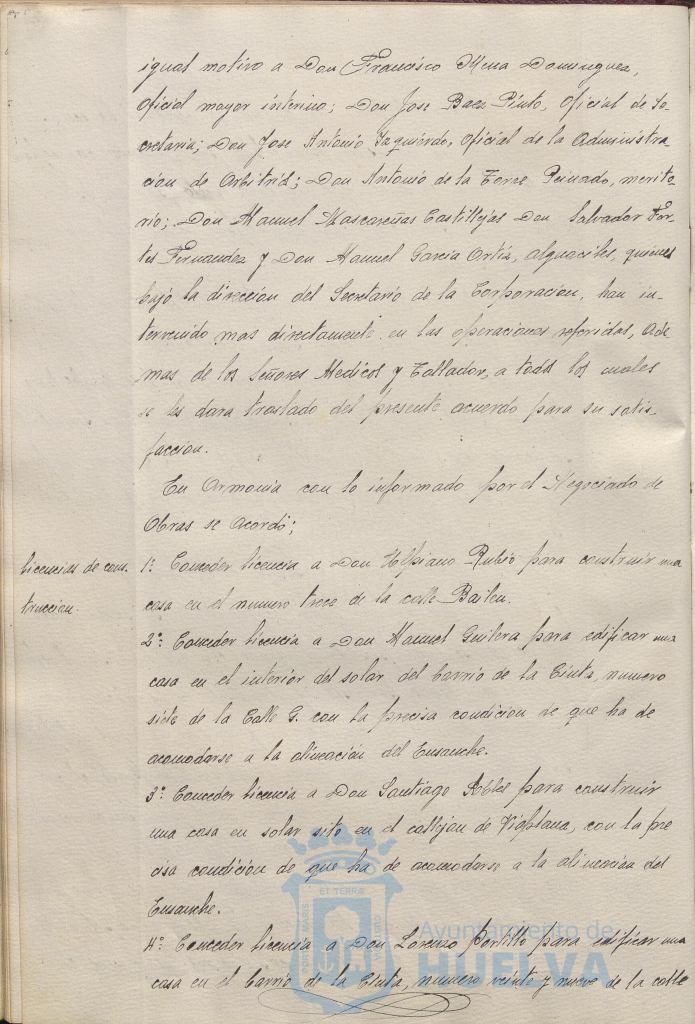 igual motivo a Don Francisco Mena Dominguez,
Oficial mayor interino; Don Jose Baez Pinto, Oficial de Se-
cretaria; Don Jose Antonio Izquierdo, Oficial de la Administra
cion de Arbitrios; Don Antonio de la Torre Peinado, merito-
rio; Don Manuel Mascareñas Castillejos Don Salvador For-
tes Fernandez y Don Manuel Garcia Ortiz, alguaciles, quienes
bajo la direccion del Secretario de la Corporacion, han in-
tervenido mas directamente en las operaciones referidas, Ade
mas de los Señores Medicos y Tallador, a todos los cuales
se les dara traslado del presente acuerdo para su satis-
faccion.
En Armonia con lo informado por el Negociado de
Obras se Acordó;
licencias de cons-
truccion.
1º: Conceder licencia a Don Ulpiano Rubio para construir una
casa en el numero trece de la calle Bailen.
2º: Conceder licencia a Don Manuel Guilera para edificar una
casa en el interior del solar del barrio de la Cinta, numero
siete de la Calle G. con la precisa condicion de que ha de
acomodarse a la alineación del Ensanche.
3º: Conceder licencia a Don Santiago Robles para construir
una casa en solar sito en el callejon de Viaplana, con la pre
cisa condición de que ha de acomodarse a la alineacion del
Ensanche.
4º: Conceder licencia a Don Lorenzo Portillo para edificar una
casa en el barrio de la Cinta, numero veinte y nueve de la calle
ET TERRÆ
PORTUS MARIS
CUSTODIA
Ayuntamiento de
HUELVA